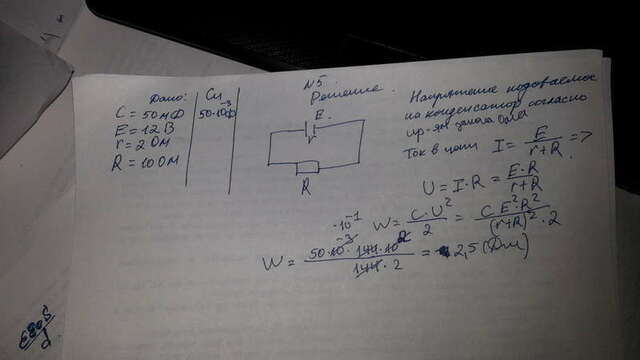 N5.
Дано:
C = 50 мФ
E = 12 В
r = 2 Ом
R = 10 Ом
Си
50·10⁻³Ф
Решение.
E.
r
R
Напряжение подоваемое
на конденсатор согласно
закона Ома
Ток в цепи I = E/(r+R) =>
U = I·R = E·R/(r+R)
W = C·U²/2 = CE²·R²/((r+R)²·2)
·10⁻¹
W = 50·10⁻³·144·10²/(144·2) = 2,5 (Дж)